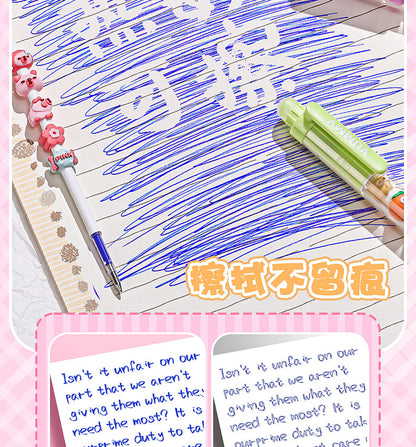 可擦
擦拭不留痕
Isn't it unfair on our
part that we aren't
giving them what they
need the most? It is
ourprime duty to
Isn't it unfair on our
part that we aren't
giving them what they
need the most? It is
ourprime duty to